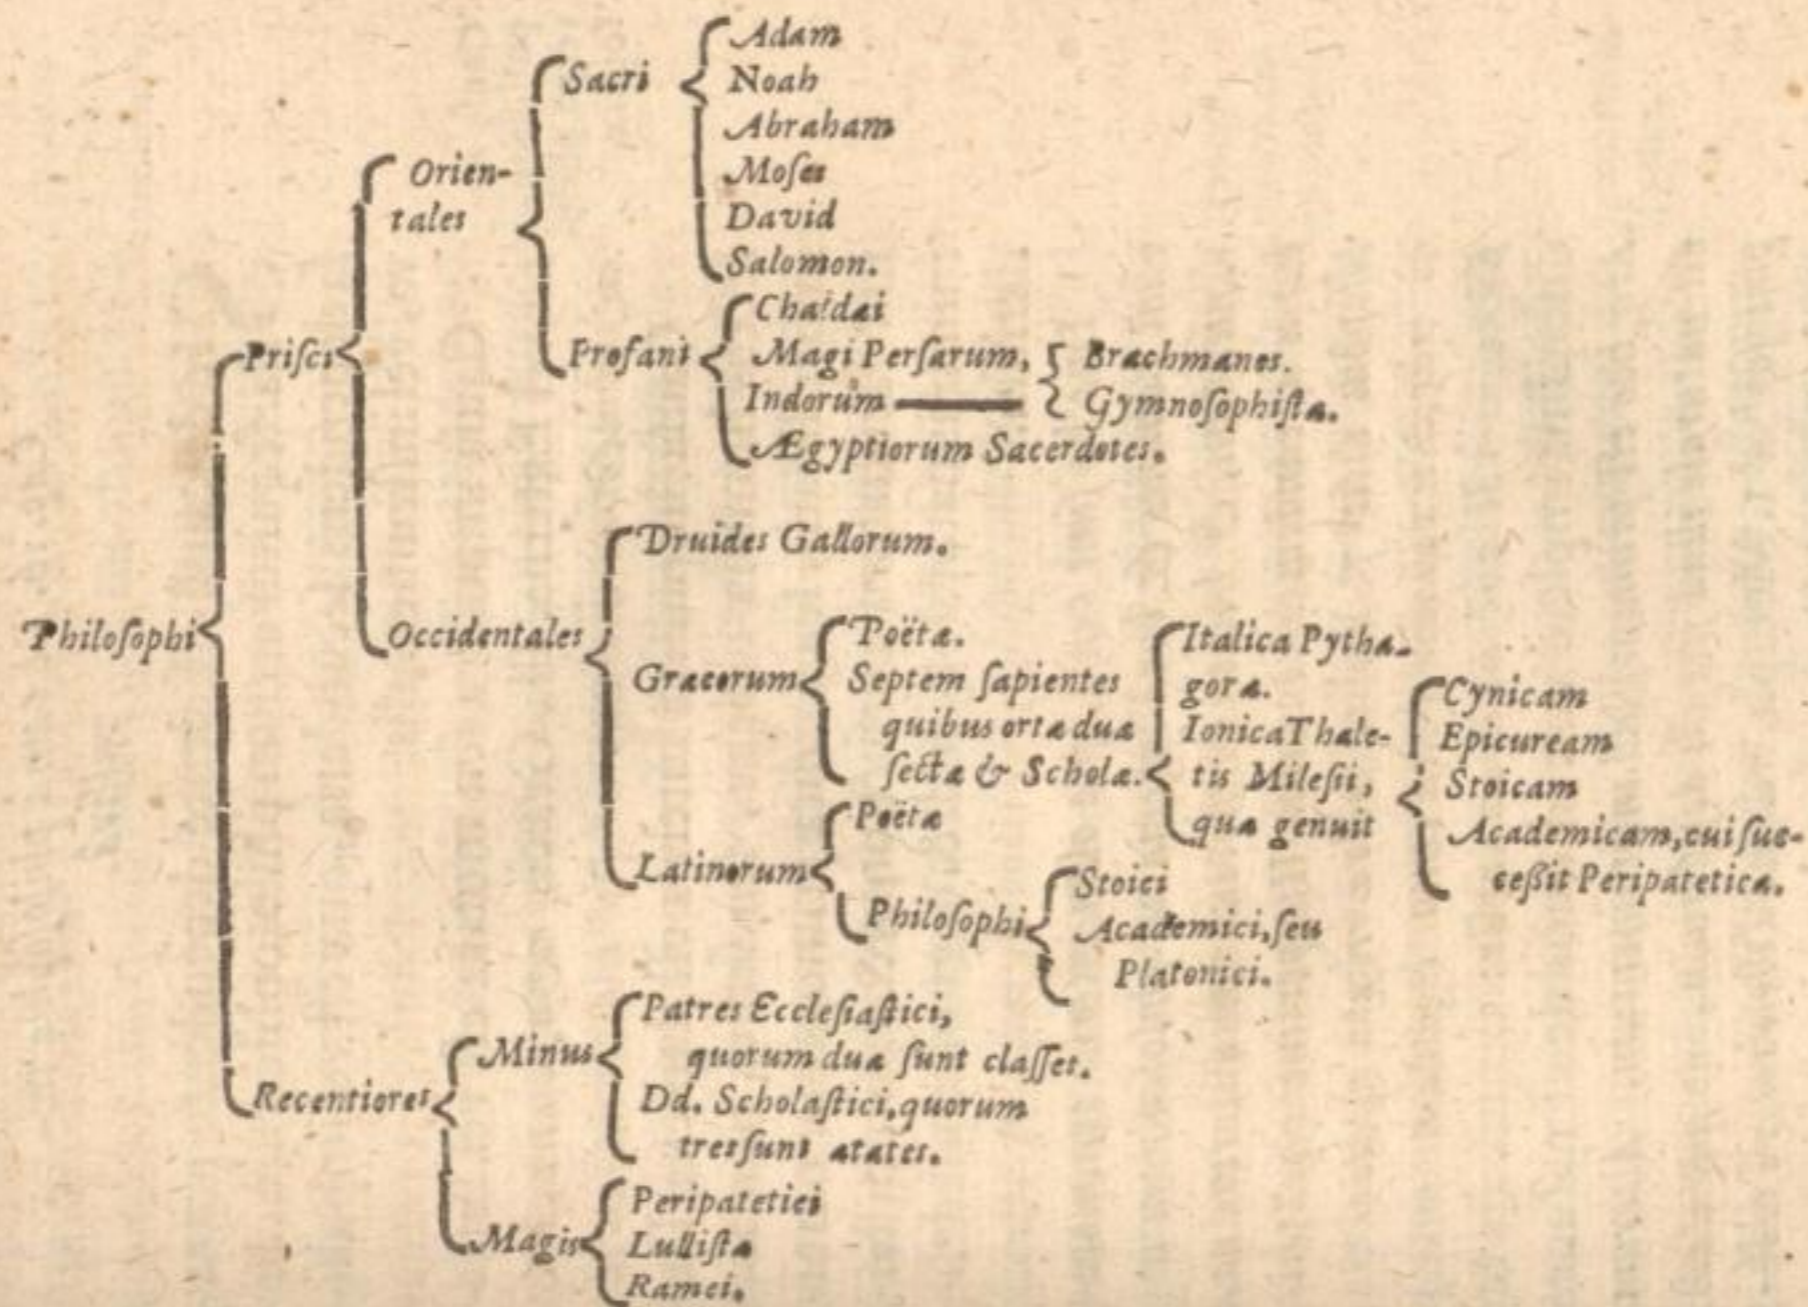 Philoſophi
Priſci
Orien-
tales
Sacri
Adam
Noah
Abraham
Moſes
David
Salomon.
Profani
Chaldæi
Magi Perſarum,
Indorum
Brachmanes.
Gymnoſophiſtæ.
Ægyptiorum Sacerdotes.
Occidentales
Druides Gallorum.
Græcorum
Poëtæ.
Septem ſapientes
quibus ortæ duæ
ſectæ & Scholæ.
Italica Pytha-
goræ.
Ionica Thale-
tis Mileſii,
quæ genuit
Cynicam
Epicuream
Stoicam
Academicam, cui ſuc-
ceßit Peripatetica.
Latinorum
Poëtæ
Philoſophi
Stoici
Academici, ſeu
Platonici.
Recentiores
Minus
Patres Eccleſiaſtici,
quorum duæ ſunt claſſes.
Dd. Scholaſtici, quorum
tres ſunt ætates.
Magis
Peripatetici
Lulliſtæ
Ramei.